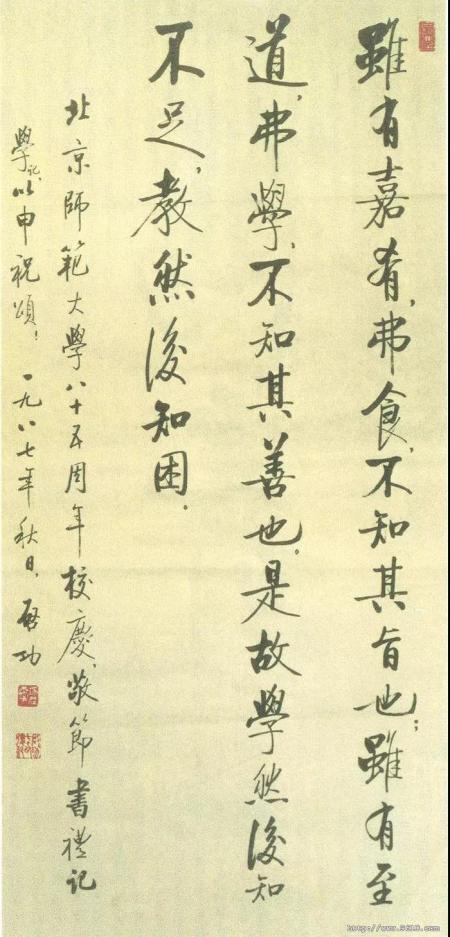 雖有嘉肴，弗食，不知其旨也；雖有至
道，弗學，不知其善也，是故學然後知
不足，教然後知困．
北京師範大學八十五周年校慶，敬節書禮記
學記，以申祝頌！一九八七年秋日，啓功
http://www.5610.com